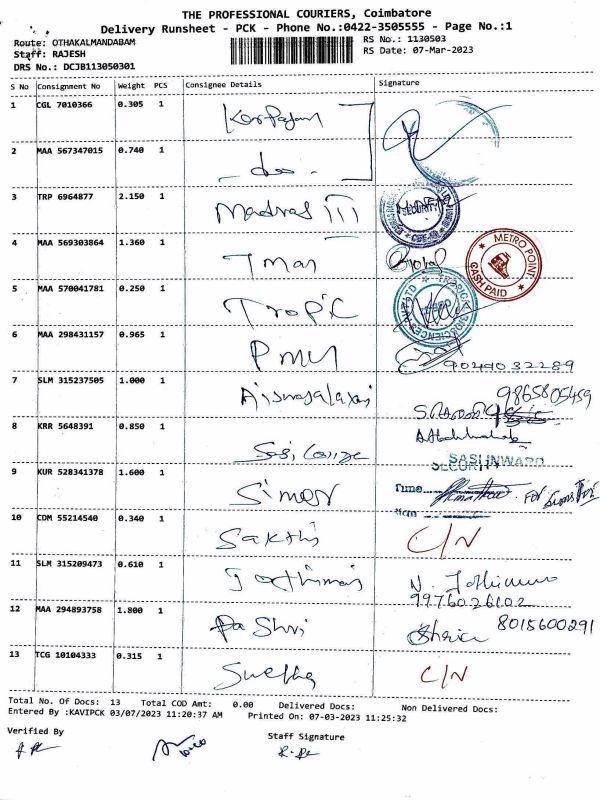 THE PROFESSIONAL COURIERS, Coimbatore
Delivery Runsheet - PCK - Phone No.:0422-3505555 - Page No.:1
Route: OTHAKALMANDABAM RS No.: 1130503
Staff: RAJESH RS Date: 07-Mar-2023
DRS No.: DCJB113050301
S No Consignment No Weight PCS Consignee Details Signature
1 CGL 7010366 0.305 1 Karpagam
2 MAA 567347015 0.740 1 -do-
3 TRP 6964877 2.150 1 Madras III SECURITY
4 MAA 569303864 1.360 1
METRO POINT
CASH PAID
5 MAA 570041781 0.250 1 Tropic
6 MAA 298431157 0.965 1 PMU 9029032289
7 SLM 315237505 1.000 1 Aiswaryalaxmi 9865805459
8 KRR 5648391 0.850 1
SASI INWARD
SECURITY
9 KUR 528341378 1.600 1 Simon Time
10 CDM 55214540 0.340 1 Sakthi C/N
11 SLM 315209473 0.610 1 9976026102
12 MAA 294893758 1.800 1 Pa Shri 8015600291
13 TCG 10104333 0.315 1 Swetha C/N
Total No. Of Docs: 13 Total COD Amt: 0.00 Delivered Docs: Non Delivered Docs:
Entered By :KAVIPCK 03/07/2023 11:20:37 AM Printed On: 07-03-2023 11:25:32
Verified By Staff Signature